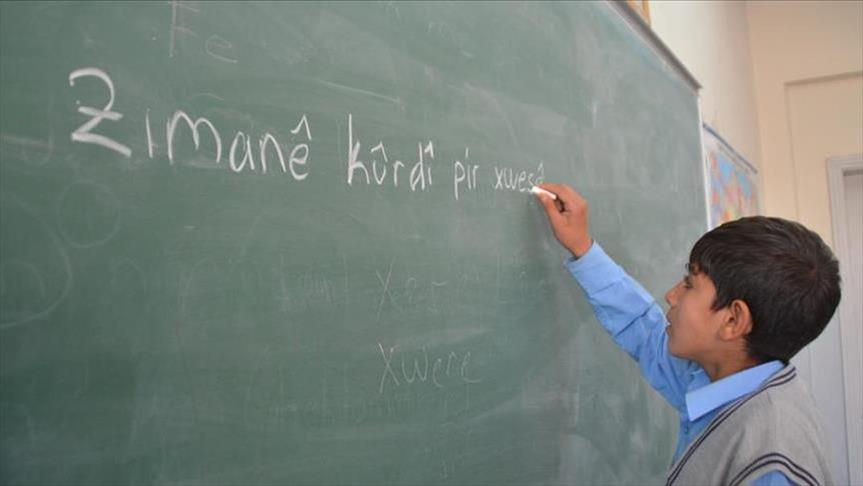 Fe
Zimanê kûrdî pir xweşê
xwere